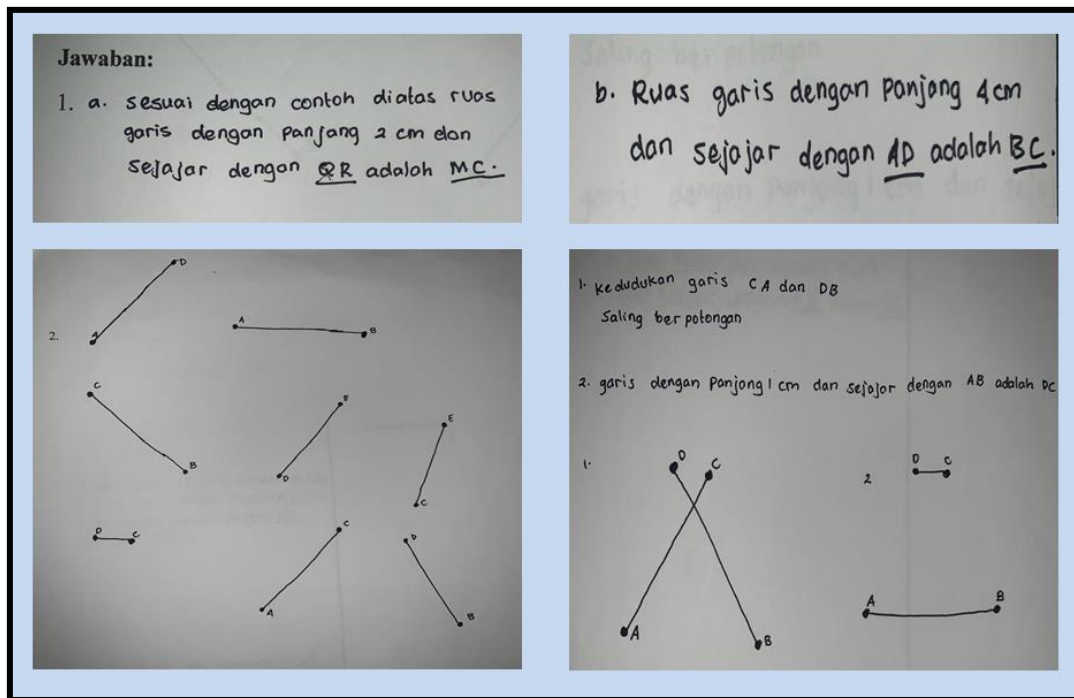 Jawaban:
1. a. sesuai dengan contoh diatas ruas
garis dengan panjang 2 cm dan
sejajar dengan QR adalah MC.
b. Ruas garis dengan panjang 4 cm
dan sejajar dengan AD adalah BC.
2.
D
A
A
B
C
B
F
D
E
C
D
C
C
A
D
B
1. Kedudukan garis CA dan DB
Saling ber potongan
2. garis dengan Panjang 1 cm dan sejajar dengan AB adalah DC
1.
D C
A
B
2
D C
A B